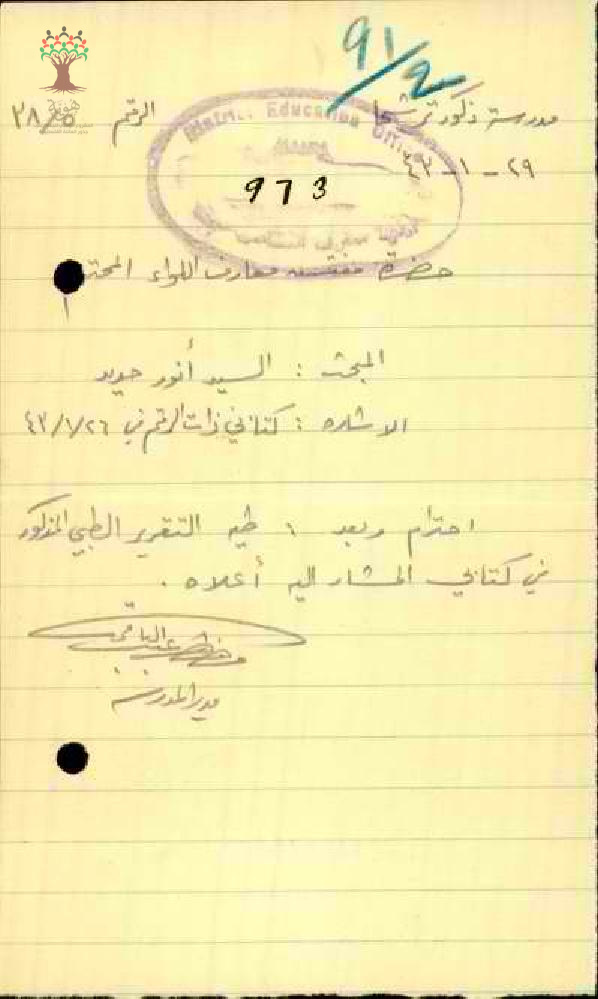 91/2
مدرسة ذكور ترشيحا الرقم ٢٨/٥
٢٩ - ١ - ٤٢
District Education Office
973
حضرة مفتش معارف اللواء المحترم
المبحث : السيد أنور حديد
الاشارة : كتابي ذات الرقم في ٤٢/١/٢٦
احترام وبعد : طيه التقرير الطبي المذكور
في كتابي المشار اليه أعلاه .
مدير المدرسة
هوية